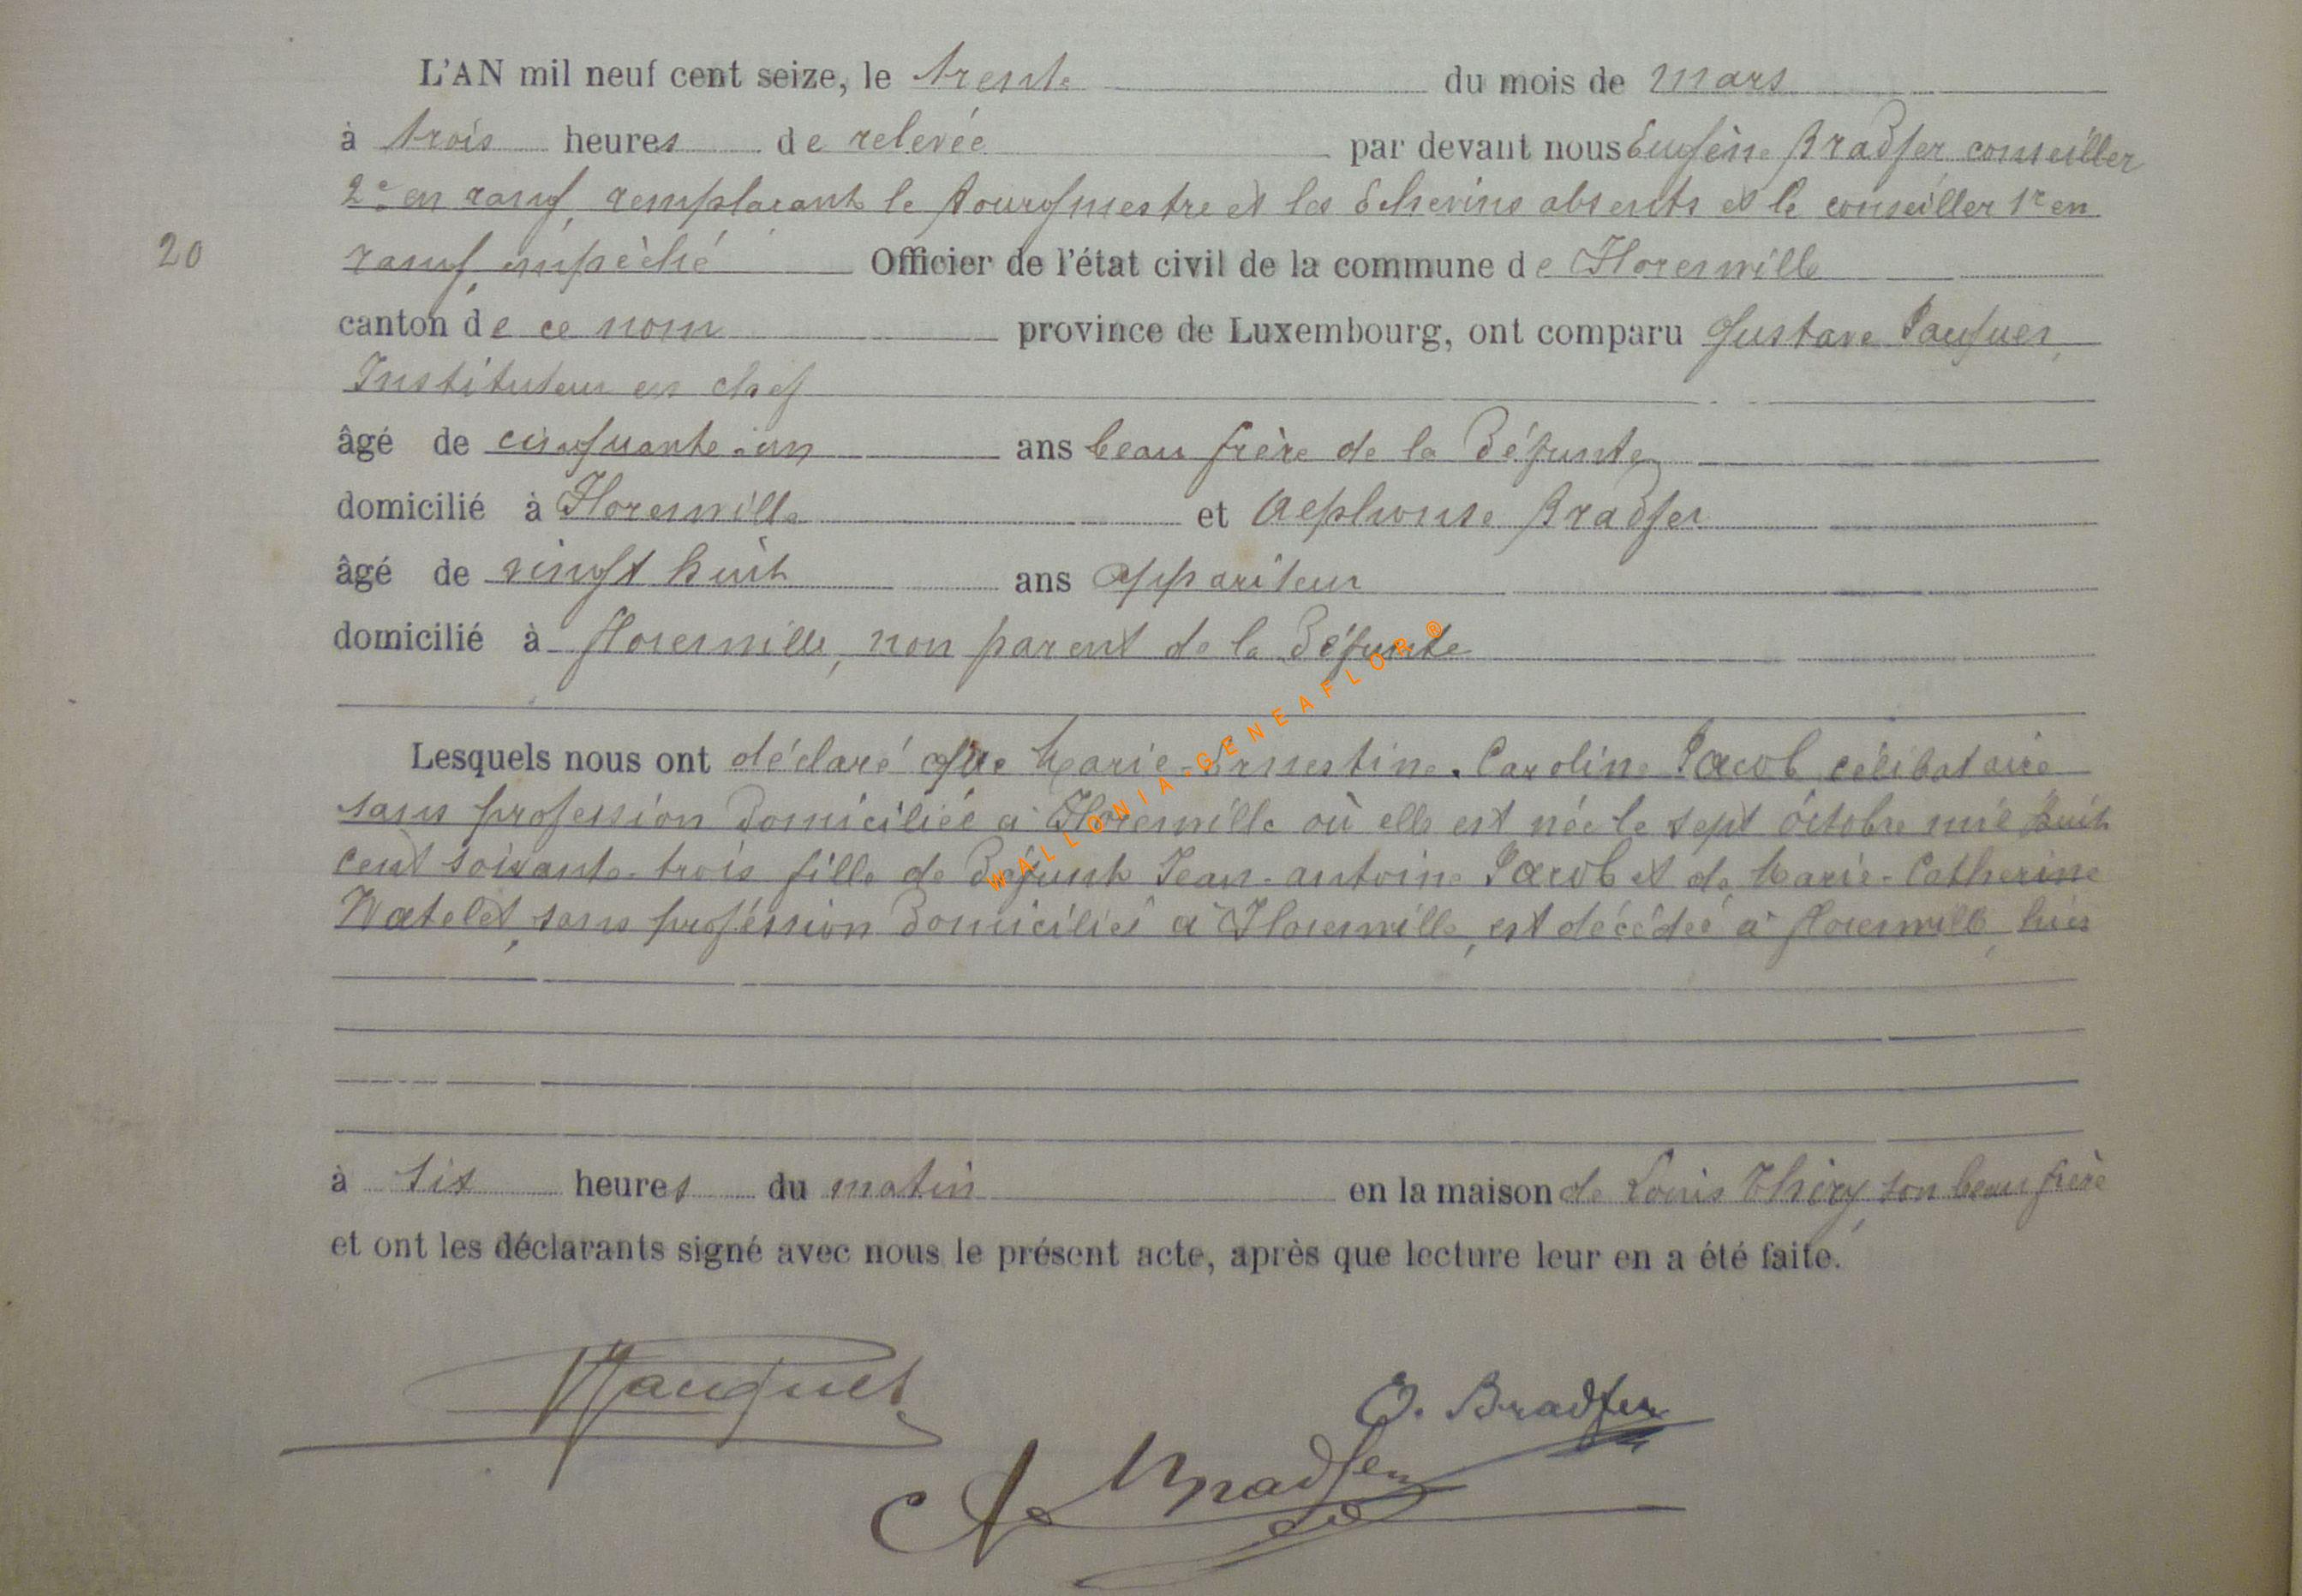 L'AN mil neuf cent seize, le trente du mois de mars
à trois heures de relevée par devant nous Eugène Bradfer conseiller
2e en rang, remplaçant le Bourgmestre et les Echevins absents et le conseiller 1r en
20
rang, empêché Officier de l'état civil de la commune de Florenville
canton de ce nom province de Luxembourg, ont comparu Gustave
Instituteur en chef
âgé de cinquante-un ans beau frère de la défunte
domicilié à Florenville et Alphonse Bradfer
âgé de vingt huit ans appariteur
domicilié à Florenville, non parent de la défunte
Lesquels nous ont déclaré que Marie-Ernestine-Caroline Jacob, célibataire
sans profession domiciliée à Florenville où elle est née le sept octobre mil huit
cent soixante-trois fille de défunt Jean-antoine Jacob et de Marie-Catherine
Watelet, sans profession domiciliés à Florenville, est décédée à Florenville, hier
à six heures du matin en la maison de Louis Thiry, son beau frère
et ont les déclarants signé avec nous le présent acte, après que lecture leur en a été faite.
E. Bradfer
A Bradfer
WALLONIA-GENEAFLOR ®